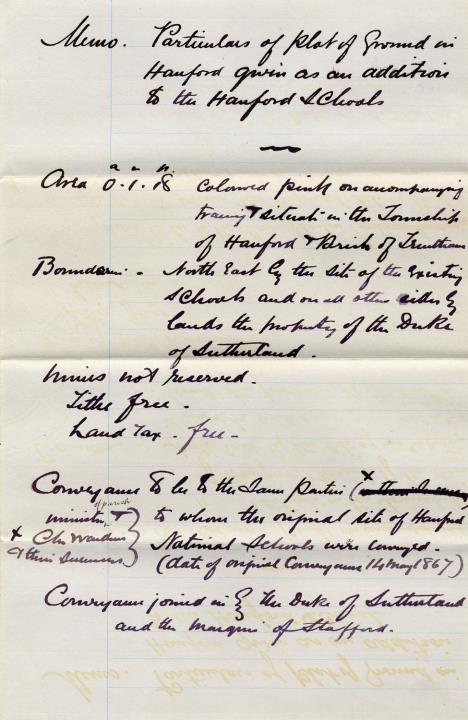 Memo. Particulars of plot of Ground in
Hanford given as an addition
to the Hanford Schools
a r p
Area 0.1.18 coloured pink on accompanying
tracing & situate in the Township
of Hanford & Parish of Trentham
Boundaries - North East by the site of the existing
Schools and on all other sides by
lands the property of the Duke
of Sutherland.
Mines not reserved.
Tithe free.
Land Tax. free.
Conveyance to be to the same Parties (x
of parish
minister & to whom the original site of Hanford
x Ch: Wardens National Schools were conveyed.
& their Successors (date of original Conveyance 14 May 1867)
Conveyance joined in by the Duke of Sutherland
and the Marquis of Stafford.